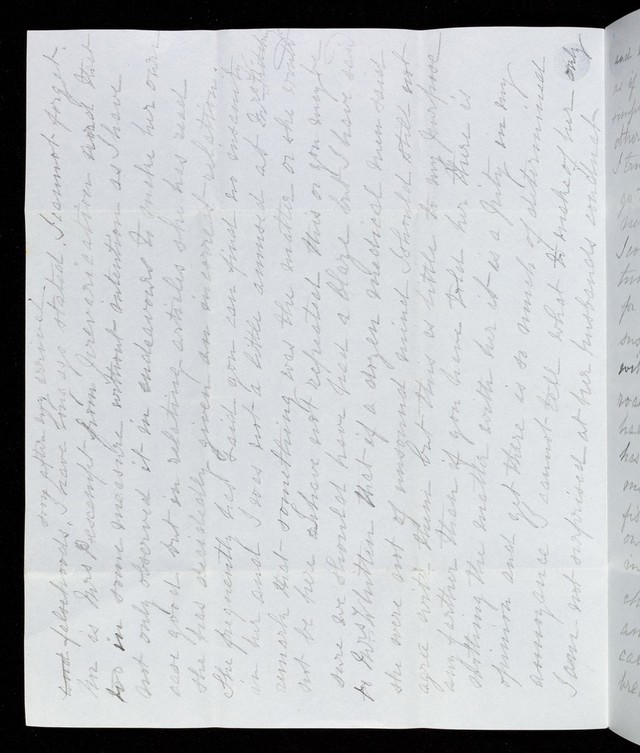 day after my arrival
falsehoods, I have this as stated I cannot forget
he is Mrs P exempt from prevarication and that
too in some measure without intention as I have
not only observed it in endeavors to make her own
case good but in relating articles she has read
she has decidedly given an incorrect relation.
She frequently has said you can find no enjoyment
in her and I was not a little amused at
remark that something was the matter or she would
not be here I have not repeated this or you may be
sure we should have had a blaze but I have said
to Mrs Whitten that if a dozen medical men said
she were not of unsound mind I should still not
agree with them but this is little to my purpose
any further than if you have told her there is
nothing the matter with her it is a pity in my
opinion and yet there is so much of determined
annoyance I cannot tell what to make of her only
I am not surprised at her husbands conduct